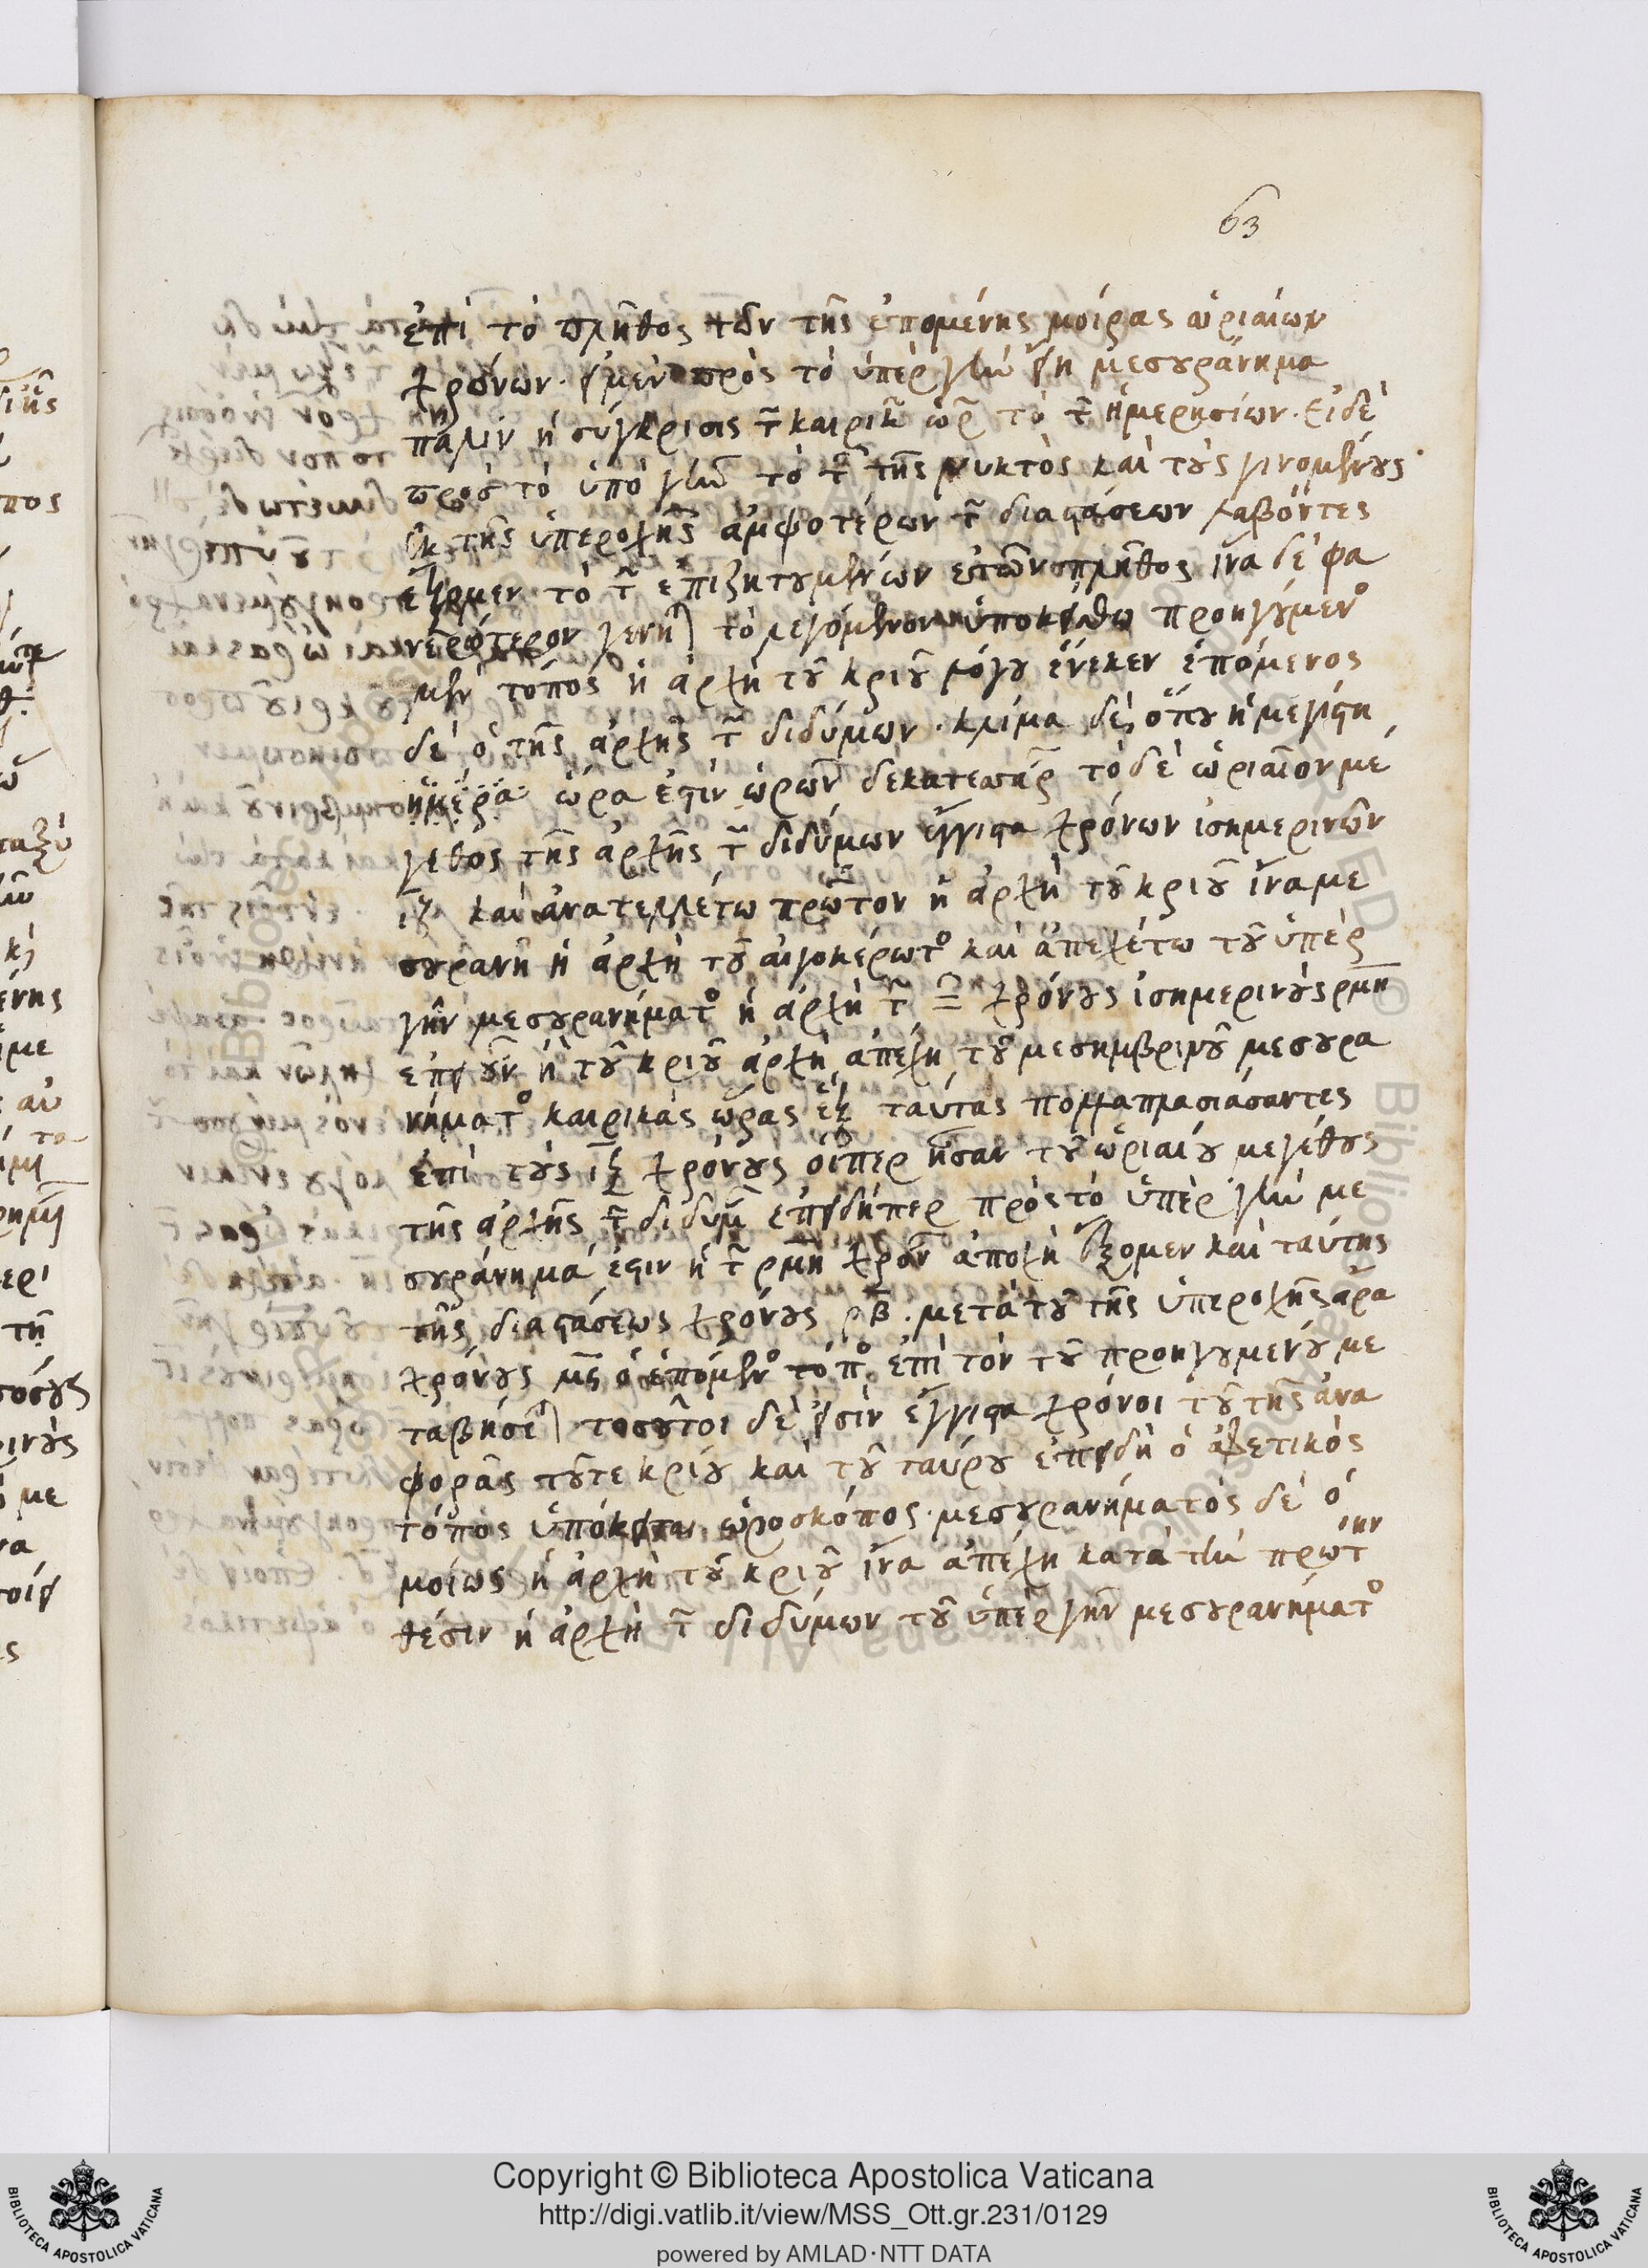 63
ἐπὶ τὸ πλῆθος τῶν τῆς ἑπομένης μοίρας ὡριαίων
χρόνων. εἰ μὲν πρὸς τὸ ὑπὲρ γῆν εἴη μεσουράνημα
πάλιν ἡ σύγκρισις τ͂ καιρικ͂ ὡρ͂ τὸ τ͂ ἡμερησίων. εἰ δὲ
πρὸς τὸ ὑπὸ γῆν τὸ τ͂ τῆς νυκτὸς καὶ τοὺς γινομένους
ἐκ τῆς ὑπεροχῆς ἀμφοτέρων τ͂ διαστάσεων λαβόντες
ἕξομεν τὸ τ͂ ἐπιζητουμένων ἐτῶν πλῆθος ἵνα δὲ φα
νερώτερον γένη) τὸ λεγόμενον ὑποκείσθω προηγούμεν°
μὲν τόπος ἡ ἀρχὴ τοῦ κριοῦ λόγου ἕνεκεν ἑπόμενος
δὲ ὁ τῆς ἀρχῆς τ͂ διδύμων. κλίμα δὲ ὅπου ἡ μεγίστη
ἡμέρα ὥρα ἐστὶν ὡρῶν δεκατεσσάρ͂ τὸ δὲ ὡριαῖον μέ
γεθος τῆς ἀρχῆς τ͂ διδύμων ἔγγιστα χρόνων ἰσημερινῶν
ιζ καὶ ἀνατελλέτω πρῶτον ἡ ἀρχὴ τοῦ κριοῦ ἵνα με
σουρανῇ ἡ ἀρχὴ τοῦ αἰγοκέρωτ° καὶ ἀπεχέτω τοῦ ὑπὲρ
γῆν μεσουρανήματ° ἡ ἀρχὴ τ͂ ♊ χρόνους ἰσημερινοὺς ρμη
ἐπεὶ οὖν ἡ τοῦ κριοῦ ἀρχὴ ἀπέχη τοῦ μεσημβρινοῦ μεσουρα
νήματ° καιρικὰς ὥρας ἓξ ταύτας πολλαπλασιάσαντες
ἐπὶ τοὺς ιζ χρόνους οἵπερ ἦσαν τοῦ ὡριαίου μεγέθους
τῆς ἀρχῆς τ͂ διδύμ͂ ἐπειδήπερ πρὸς τὸ ὑπὲρ γῆν με
σουράνημά ἐστιν ἡ τ͂ ρμη χρόν͂ ἀποχὴ ἕξομεν καὶ ταύτης
τῆς διαστάσεως χρόνους ρβ. μετὰ τοῦ τῆς ὑπεροχῆς ἄρα
χρόνους μς ὁ ἑπόμεν° τόπ° ἐπὶ τὸν τοῦ προηγουμένου με
ταβήσε) τοσοῦτοι δέ εἰσιν ἔγγιστα χρόνοι τοῦ τῆς ἀνα
φορᾶς τοῦ τε κριοῦ καὶ τοῦ ταύρου ἐπειδὴ ὁ ἀφετικὸς
τόπος ὑπόκειται ὡροσκόπος. μεσουρανήματὸς δὲ ὁ
μοίως ἡ ἀρχὴ τοῦ κριοῦ ἵνα ἀπέχη κατὰ τὴν πρώτην
θέσιν ἡ ἀρχὴ τ͂ διδύμων τοῦ ὑπὲρ γῆν μεσουρανήματ°
Copyright © Biblioteca Apostolica Vaticana
http://digi.vatlib.it/view/MSS_Ott.gr.231/0129
powered by AMLAD·NTT DATA
BIBLIOTECA APOSTOLICA VATICANA
BIBLIOTECA APOSTOLICA VATICANA